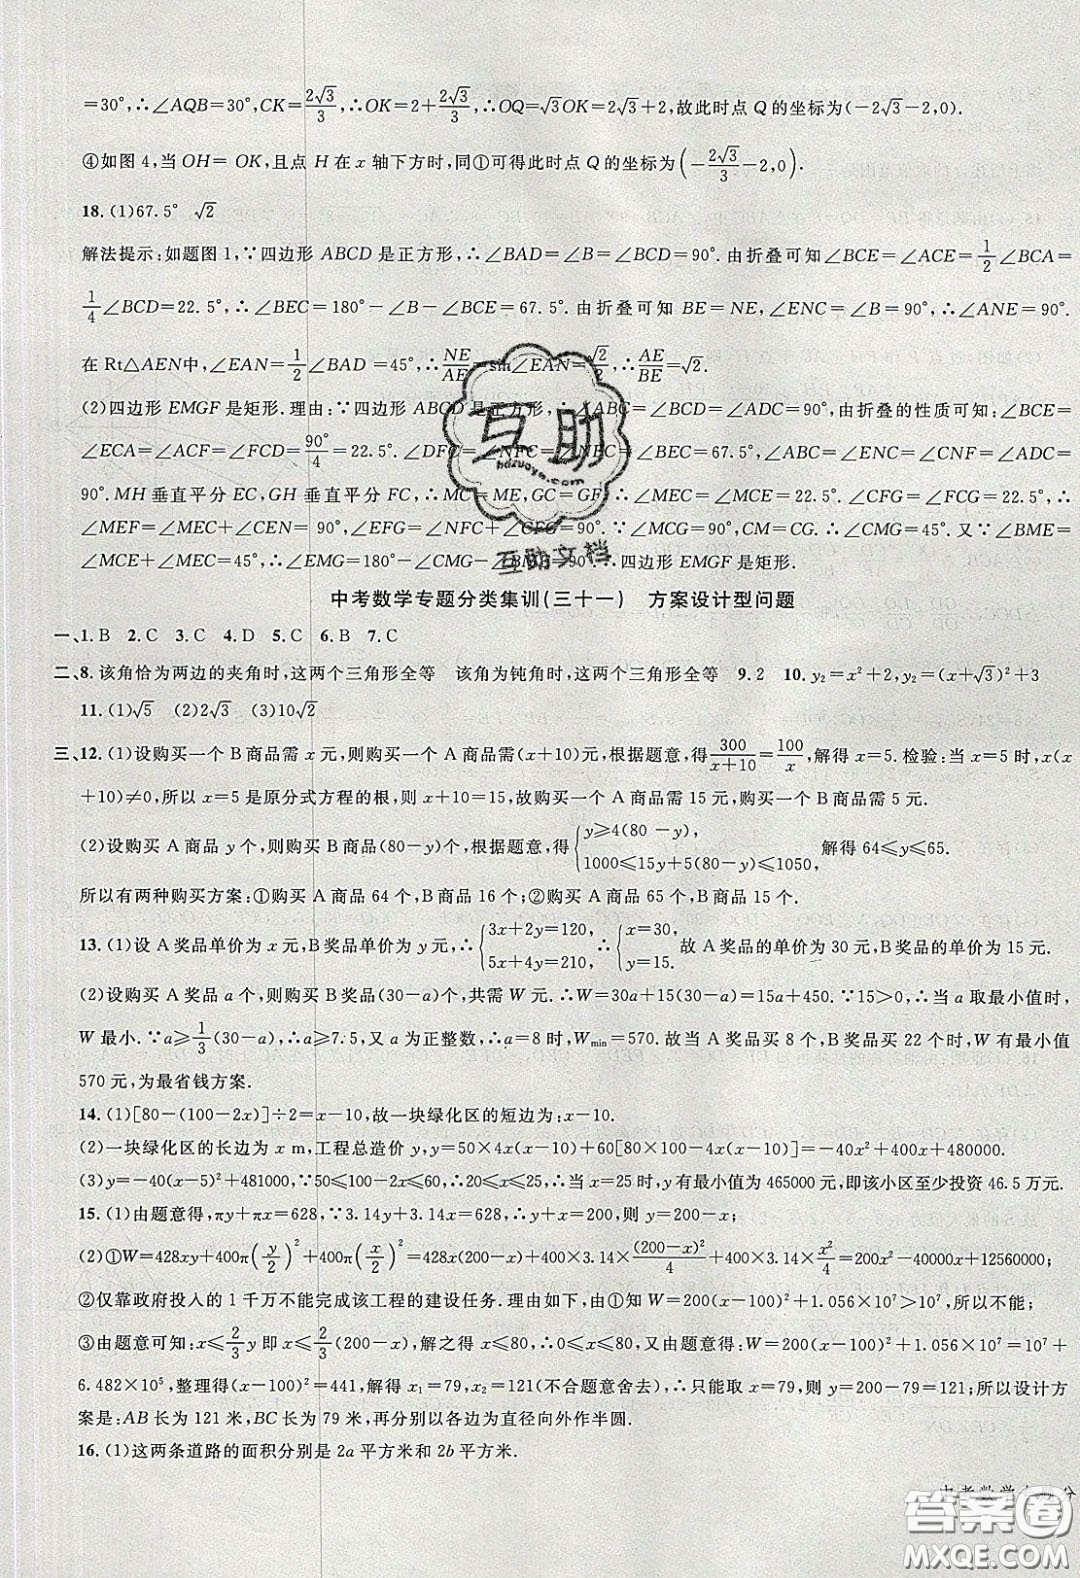 =30°,∴∠AQB=30°,CK=2√3/3,∴OK=2+2√3/3,∴OQ=√3OK=2√3+2,故此时点 Q 的坐标为(−2√3−2,0).
④如图 4,当 OH=OK,且点 H 在 x 轴下方时,同①可得此时点 Q 的坐标为(−2√3/3−2,0).
18.(1)67.5° √2
解法提示:如题图 1,∵四边形 ABCD 是正方形,∴∠BAD=∠B=∠BCD=90°.由折叠可知∠BCE=∠ACE=1/2∠BCA=
1/4∠BCD=22.5°,∴∠BEC=180°−∠B−∠BCE=67.5°.由折叠可知 BE=NE,∠ENC=∠B=90°,∴∠ANE=90°.
在 Rt△AEN中,∠EAN=1/2∠BAD=45°,∴NE/AE=sin∠EAN=√2/2,∴AE/BE=√2.
(2)四边形 EMGF 是矩形.理由:∵四边形 ABCD 是正方形,∴∠B=∠BCD=∠ADC=90°,由折叠的性质可知:∠BCE=
∠ECA=∠ACF=∠FCD=90°/4=22.5°,∠DFC=∠NFC=∠BEC=∠NEC=67.5°,∠ABC=∠ENC=∠CNF=∠ADC=
90°.MH 垂直平分 EC,GH 垂直平分 FC,∴MC=ME,GC=GF,∴∠MEC=∠MCE=22.5°.∠CFG=∠FCG=22.5°,∴
∠MEF=∠MEC+∠CEN=90°,∠EFG=∠NFC+∠CFG=90°.∵∠MCG=90°,CM=CG.∴∠CMG=45°.又∵∠BME=
∠MCE+∠MEC=45°,∴∠EMG=180°−∠CMG−∠BME=90°,∴四边形 EMGF 是矩形.
中考数学专题分类集训(三十一) 方案设计型问题
一、1.B 2.C 3.C 4.D 5.C 6.B 7.C
二、8.该角恰为两边的夹角时,这两个三角形全等 该角为钝角时,这两个三角形全等 9.2 10.y₂=x²+2,y₂=(x+√3)²+3
11.(1)√5 (2)2√3 (3)10√2
三、12.(1)设购买一个 B 商品需 x 元,则购买一个 A 商品需(x+10)元,根据题意,得300/(x+10)=100/x,解得 x=5.检验:当 x=5 时,x(x
+10)≠0,所以 x=5 是原分式方程的根,则 x+10=15,故购买一个 A 商品需 15 元,购买一个 B 商品需 5 元.
(2)设购买 A 商品 y 个,则购买 B 商品(80−y)个,根据题意,得{y⩾4(80−y), 1000⩽15y+5(80−y)⩽1050, 解得 64⩽y⩽65.
所以有两种购买方案:①购买 A 商品 64 个,B 商品 16 个;②购买 A 商品 65 个,B 商品 15 个.
13.(1)设 A 奖品单价为 x 元,B 奖品单价为 y 元,∴{3x+2y=120, 5x+4y=210, ∴{x=30, y=15. 故 A 奖品的单价为 30 元,B 奖品的单价为 15 元.
(2)设购买 A 奖品 a 个,则购买 B 奖品(30−a)个,共需 W 元.∴W=30a+15(30−a)=15a+450.∵15>0,∴当 a 取最小值时,
W 最小.∵a⩾1/3(30−a),∴a⩾7.5,又∵a 为正整数,∴a=8 时,Wmin=570.故当 A 奖品买 8 个,B 奖品买 22 个时,W 有最小值
570 元,为最省钱方案.
14.(1)[80−(100−2x)]÷2=x−10,故一块绿化区的短边为:x−10.
(2)一块绿化区的长边为 x m,工程总造价 y,y=50×4x(x−10)+60[8000−4x(x−10)]=−40x²+400x+480000.
(3)y=−40(x−5)²+481000,∵50⩽100−2x⩽60,∴20⩽x⩽25,∴当 x=25 时,y 有最小值为 465000 元,即该小区至少投资 46.5 万元.
15.(1)由题意得,πy+πx=628,∵3.14y+3.14x=628,∴y+x=200,则 y=200−x;
(2)①W=428xy+400π(y/2)²+400π(x/2)²=428x(200−x)+400×3.14×(200−x)²/4+400×3.14×x²/4=200x²−40000x+12560000;
②仅靠政府投入的 1 千万不能完成该工程的建设任务.理由如下,由①知 W=200(x−100)²+1.056×10⁷>10⁷,所以不能;
③由题意可知:x⩽2/3y 即 x⩽2/3(200−x),解之得 x⩽80,∴0⩽x⩽80,又由题意得:W=200(x−100)²+1.056×10⁷=10⁷+
6.482×10⁵,整理得(x−100)²=441,解得 x₁=79,x₂=121(不合题意舍去),∴只能取 x=79,则 y=200−79=121;所以设计方
案是:AB 长为 121 米,BC 长为 79 米,再分别以各边为直径向外作半圆.
16.(1)这两条道路的面积分别是 2a 平方米和 2b 平方米.
互助
hdzuoye.com
互助文档
中考数学
分
答案圈
MXQE.COM